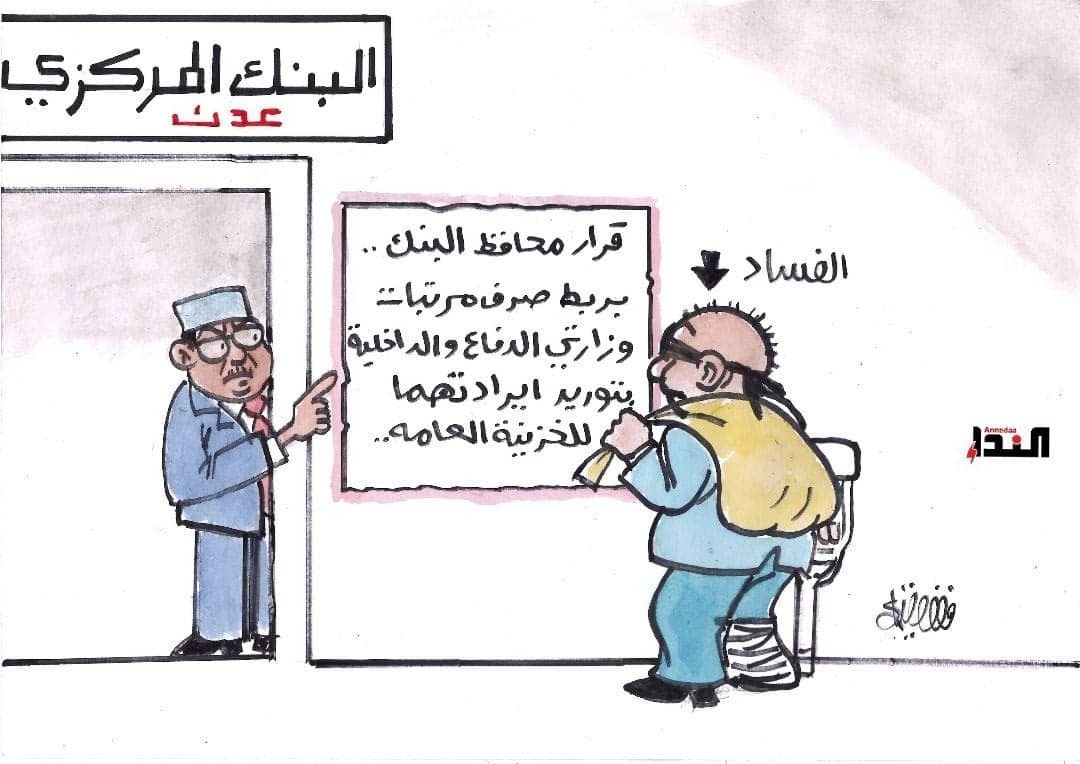 البنك المركزي
عدن
قرار محافظ البنك ..
بربط صرف مرتبات
وزارتي الدفاع والداخلية
بتوريد ايرادتهما
للخزينة العامه..
الفساد
Annedaa
النداء